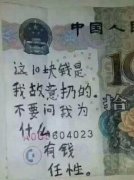 中国人民
这10块钱是
我故意扔的。
不要问我为
什么
604023
有钱
任性。
10
拾